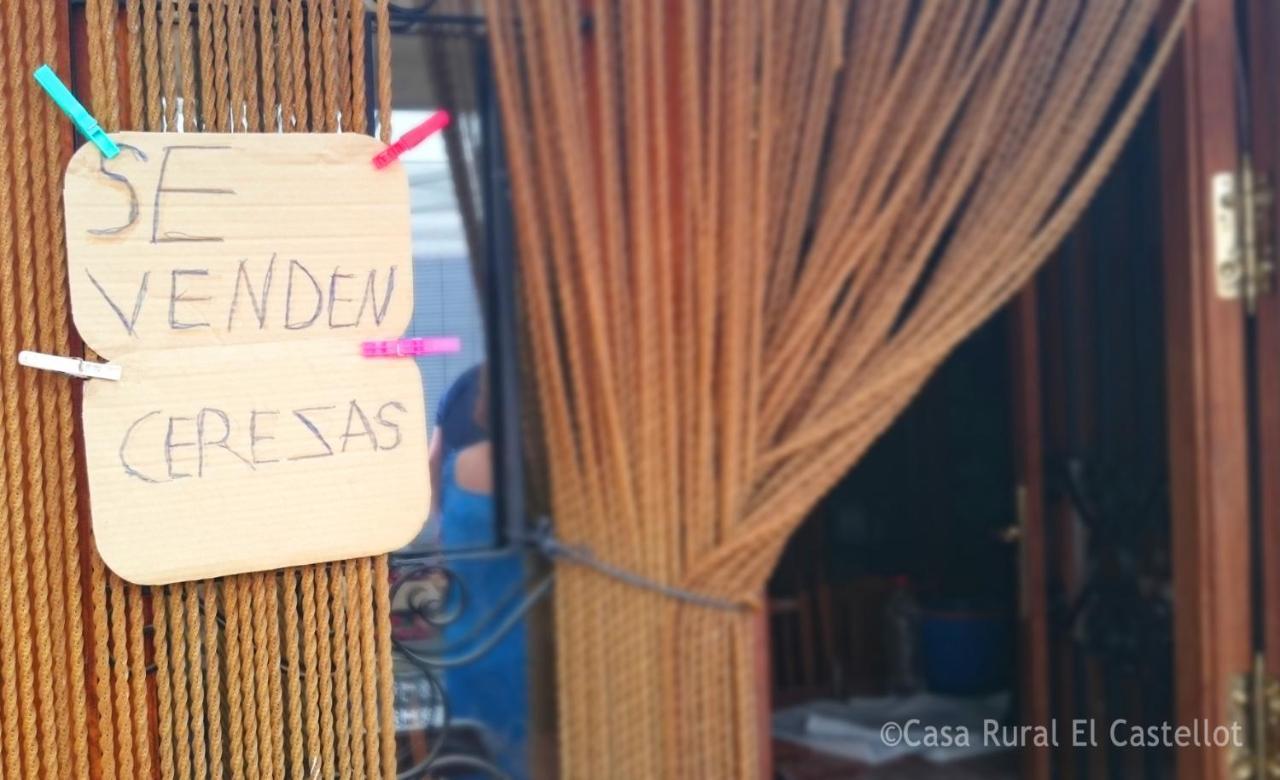 SE
VENDEN
CEREZAS
©Casa Rural El Castellot